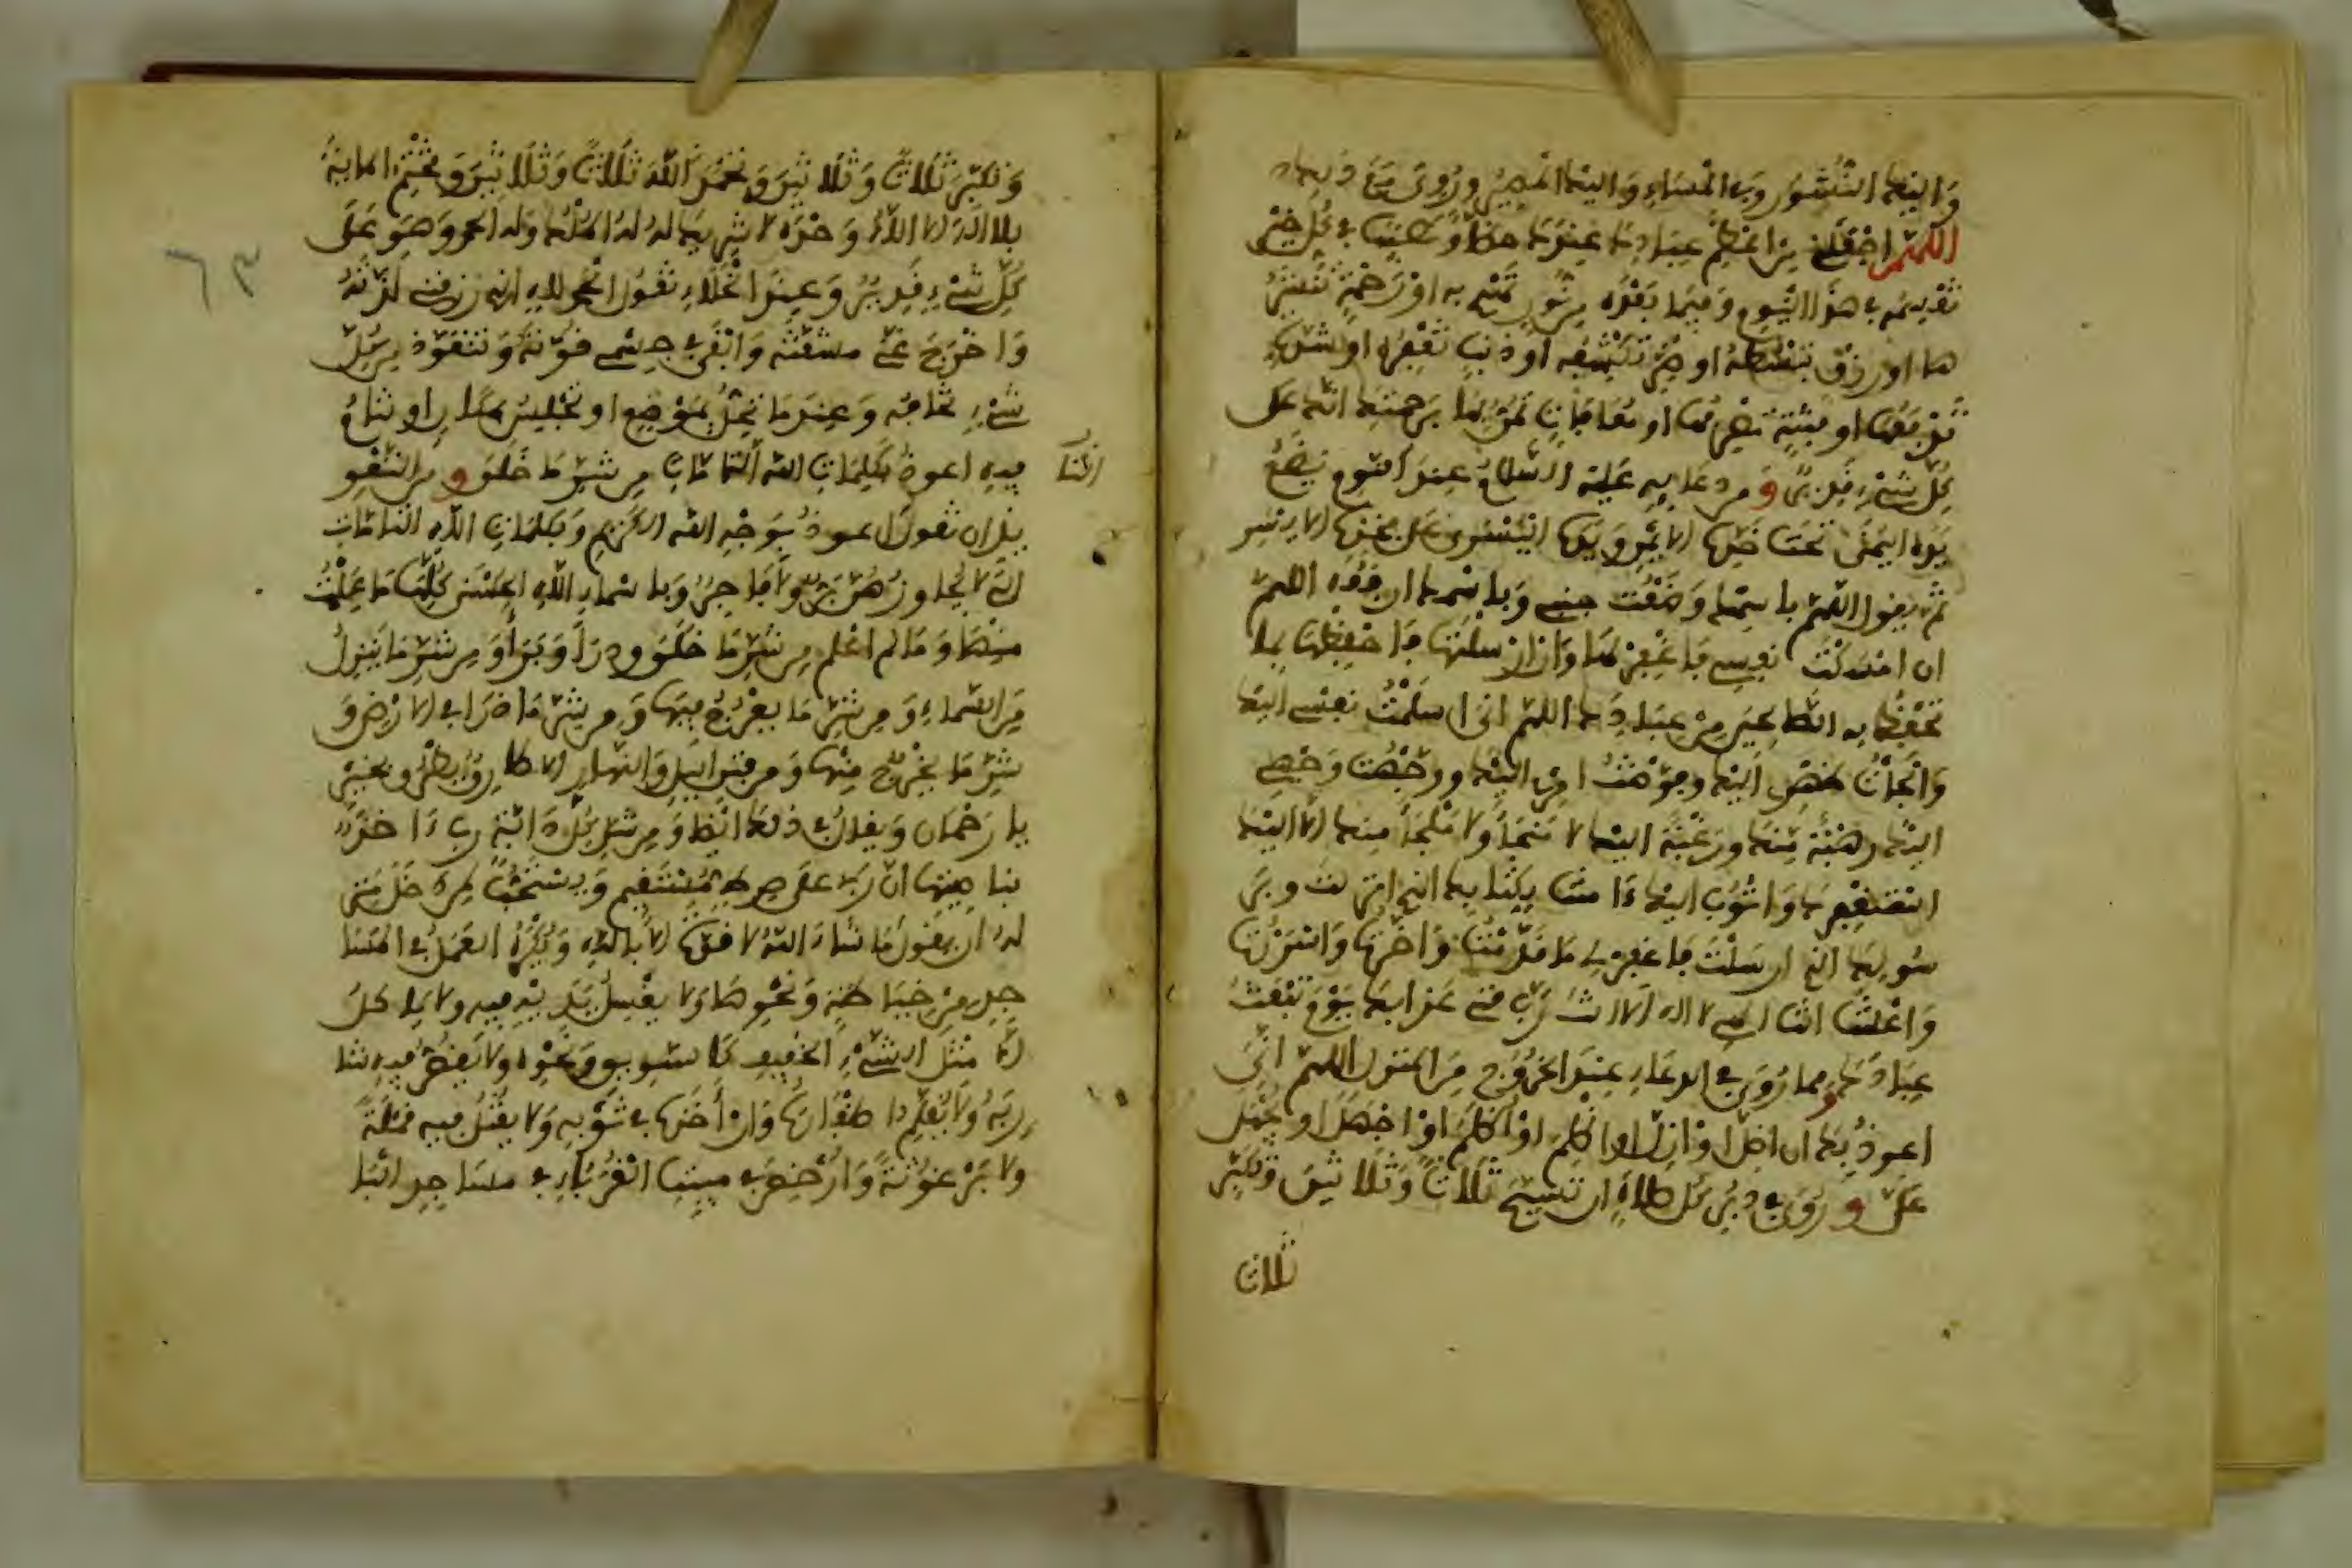 وَاِلَيْكَ النُّشُورُ وَفِي الْمَسَاءِ وَاِلَيْكَ الْمَصِيرُ وَرُوِيَ مَعَ ذَلِكَ
اللَّهُمَّ اجْعَلْنِي مِنْ اَعْظَمِ عِبَادِكَ عِنْدَكَ حَظًّا وَنَصِيبًا فِي كُلِّ خَيْرٍ
تَقْسِمُهُ فِي هَذَا الْيَوْمِ وَفِيمَا بَعْدَهُ مِنْ نُورٍ تَهْدِي بِهِ اَوْ رَحْمَةٍ تَنْشُرُ
هَا اَوْ رِزْقٍ تَبْسُطُهُ اَوْ ضُرٍّ تَكْشِفُهُ اَوْ ذَنْبٍ تَغْفِرُهُ اَوْ شِدَّةٍ
تَدْفَعُهَا اَوْ فِتْنَةٍ تَصْرِفُهَا اَوْ مُعَافَاتٍ تَمُنُّ بِهَا بِرَحْمَتِكَ اِنَّكَ عَلَى
كُلِّ شَيْءٍ قَدِيرٌ وَمِنْ دُعَائِهِ عَلَيْهِ السَّلَامُ عِنْدَ النَّوْمِ يَضَعُ
يَدَهُ الْيُمْنَى تَحْتَ خَدِّهِ الْاَيْمَنِ وَيَدَهُ الْيُسْرَى عَلَى فَخِذِهِ الْاَيْسَرِ
ثُمَّ يَقُولُ اللَّهُمَّ بِاسْمِكَ وَضَعْتُ جَنْبِي وَبِاسْمِكَ اَرْفَعُهُ اللَّهُمَّ
اِنْ اَمْسَكْتَ نَفْسِي فَاغْفِرْ لَهَا وَاِنْ اَرْسَلْتَهَا فَاحْفَظْهَا بِمَا
تَحْفَظُ بِهِ الصَّالِحِينَ مِنْ عِبَادِكَ اللَّهُمَّ اِنِّي اَسْلَمْتُ نَفْسِي اِلَيْكَ
وَاَلْجَأْتُ ظَهْرِي اِلَيْكَ وَفَوَّضْتُ اَمْرِي اِلَيْكَ وَوَجَّهْتُ وَجْهِي
اِلَيْكَ رَهْبَةً مِنْكَ وَرَغْبَةً اِلَيْكَ لَا مَنْجَأَ وَلَا مَلْجَأَ مِنْكَ اِلَّا اِلَيْكَ
اَسْتَغْفِرُكَ وَاَتُوبُ اِلَيْكَ ءَامَنْتُ بِكِتَابِكَ الَّذِي اَنْزَلْتَ وَبِرَ
سُولِكَ الَّذِي اَرْسَلْتَ فَاغْفِرْ لِي مَا قَدَّمْتُ وَاَخَّرْتُ وَاَسْرَرْتُ
وَاَعْلَنْتُ اَنْتَ اِلَهِي لَا اِلَهَ اِلَّا اَنْتَ رَبِّ قِنِي عَذَابَكَ يَوْمَ تَبْعَثُ
عِبَادَكَ وَمِمَّا رُوِيَ فِي الدُّعَاءِ عِنْدَ الْخُرُوجِ مِنَ الْمَنْزِلِ اللَّهُمَّ اِنِّي
اَعُوذُ بِكَ اَنْ اَضِلَّ اَوْ اَزِلَّ اَوْ اَظْلِمَ اَوْ اُظْلَمَ اَوْ اَجْهَلَ اَوْ يُجْهَلَ
عَلَيَّ وَرُوِيَ فِي دُبُرِ كُلِّ صَلَاةٍ اَنْ تُسَبِّحَ ثَلَاثًا وَثَلَاثِينَ وَتُكَبِّرَ
ثَلَاثًا
٦٣
وَتُكَبِّرَ ثَلَاثًا وَثَلَاثِينَ وَتَحْمَدَ اللَّهَ ثَلَاثًا وَثَلَاثِينَ وَتَخْتِمَ الْمِائَةَ
بِلَا اِلَهَ اِلَّا اللَّهُ وَحْدَهُ لَا شَرِيكَ لَهُ لَهُ الْمُلْكُ وَلَهُ الْحَمْدُ وَهُوَ عَلَى
كُلِّ شَيْءٍ قَدِيرٌ وَعِنْدَ الْخَلَاءِ تَقُولُ الْحَمْدُ لِلَّهِ الَّذِي رَزَقَنِي لَذَّتَهُ
وَاَخْرَجَ عَنِّي مَشَقَّتَهُ وَاَبْقَى فِي جِسْمِي قُوَّتَهُ وَتَتَعَوَّذُ مِنْ كُلِّ
شَيْءٍ تَخَافُهُ وَعِنْدَ مَا تَحُلُّ بِمَوْضِعٍ اَوْ تَجْلِسُ بِمَكَانٍ اَوْ تَنَامُ
فِيهِ اَعُوذُ بِكَلِمَاتِ اللَّهِ التَّامَّاتِ مِنْ شَرِّ مَا خَلَقَ وَمِنَ التَّعَوُّ
ذِ اَنْ تَقُولَ اَعُوذُ بِوَجْهِ اللَّهِ الْكَرِيمِ وَبِكَلِمَاتِ اللَّهِ التَّامَّاتِ
الَّتِي لَا يُجَاوِزُهُنَّ بَرٌّ وَلَا فَاجِرٌ وَبِاَسْمَاءِ اللَّهِ الْحُسْنَى كُلِّهَا مَا عَلِمْتُ
مِنْهَا وَمَا لَمْ اَعْلَمْ مِنْ شَرِّ مَا خَلَقَ وَذَرَأَ وَبَرَأَ وَمِنْ شَرِّ مَا يَنْزِلُ
مِنَ السَّمَاءِ وَمِنْ شَرِّ مَا يَعْرُجُ فِيهَا وَمِنْ شَرِّ مَا ذَرَأَ فِي الْاَرْضِ وَ
شَرِّ مَا يَخْرُجُ مِنْهَا وَمِنْ فِتَنِ اللَّيْلِ وَالنَّهَارِ اِلَّا طَارِقًا يَطْرُقُ بِخَيْرٍ
يَا رَحْمَانُ وَيُقَالُ فِي ذَلِكَ اَيْضًا وَمِنْ شَرِّ كُلِّ دَابَّةٍ رَبِّي ءَاخِذٌ
بِنَاصِيَتِهَا اِنَّ رَبِّي عَلَى صِرَاطٍ مُسْتَقِيمٍ وَيُسْتَحَبُّ لِمَنْ دَخَلَ مَنْزِ
لَهُ اَنْ يَقُولَ مَا شَاءَ اللَّهُ لَا قُوَّةَ اِلَّا بِاللَّهِ وَيُكْرَهُ الْعَمَلُ فِي الْمَسَا
جِدِ مِنْ خِيَاطَةٍ وَنَحْوِهَا وَلَا يَغْسِلُ يَدَيْهِ فِيهِ وَلَا يَأْكُلُ
اِلَّا مِثْلَ الشَّيْءِ الْخَفِيفِ كَالسَّوِيقِ وَنَحْوِهِ وَلَا يَقُصُّ فِيهِ شَا
رِبَهُ وَلَا يُقَلِّمُ اَظْفَارَهُ وَاِنْ اَخَذَهُ فِي ثَوْبِهِ وَلَا يَقْتُلُ فِيهِ قَمْلَةً
وَلَا بَرْغُوثَةً وَاُرْخِصَ فِي مَبِيتِ الْغُرَبَاءِ فِي مَسَاجِدِ الْبَا